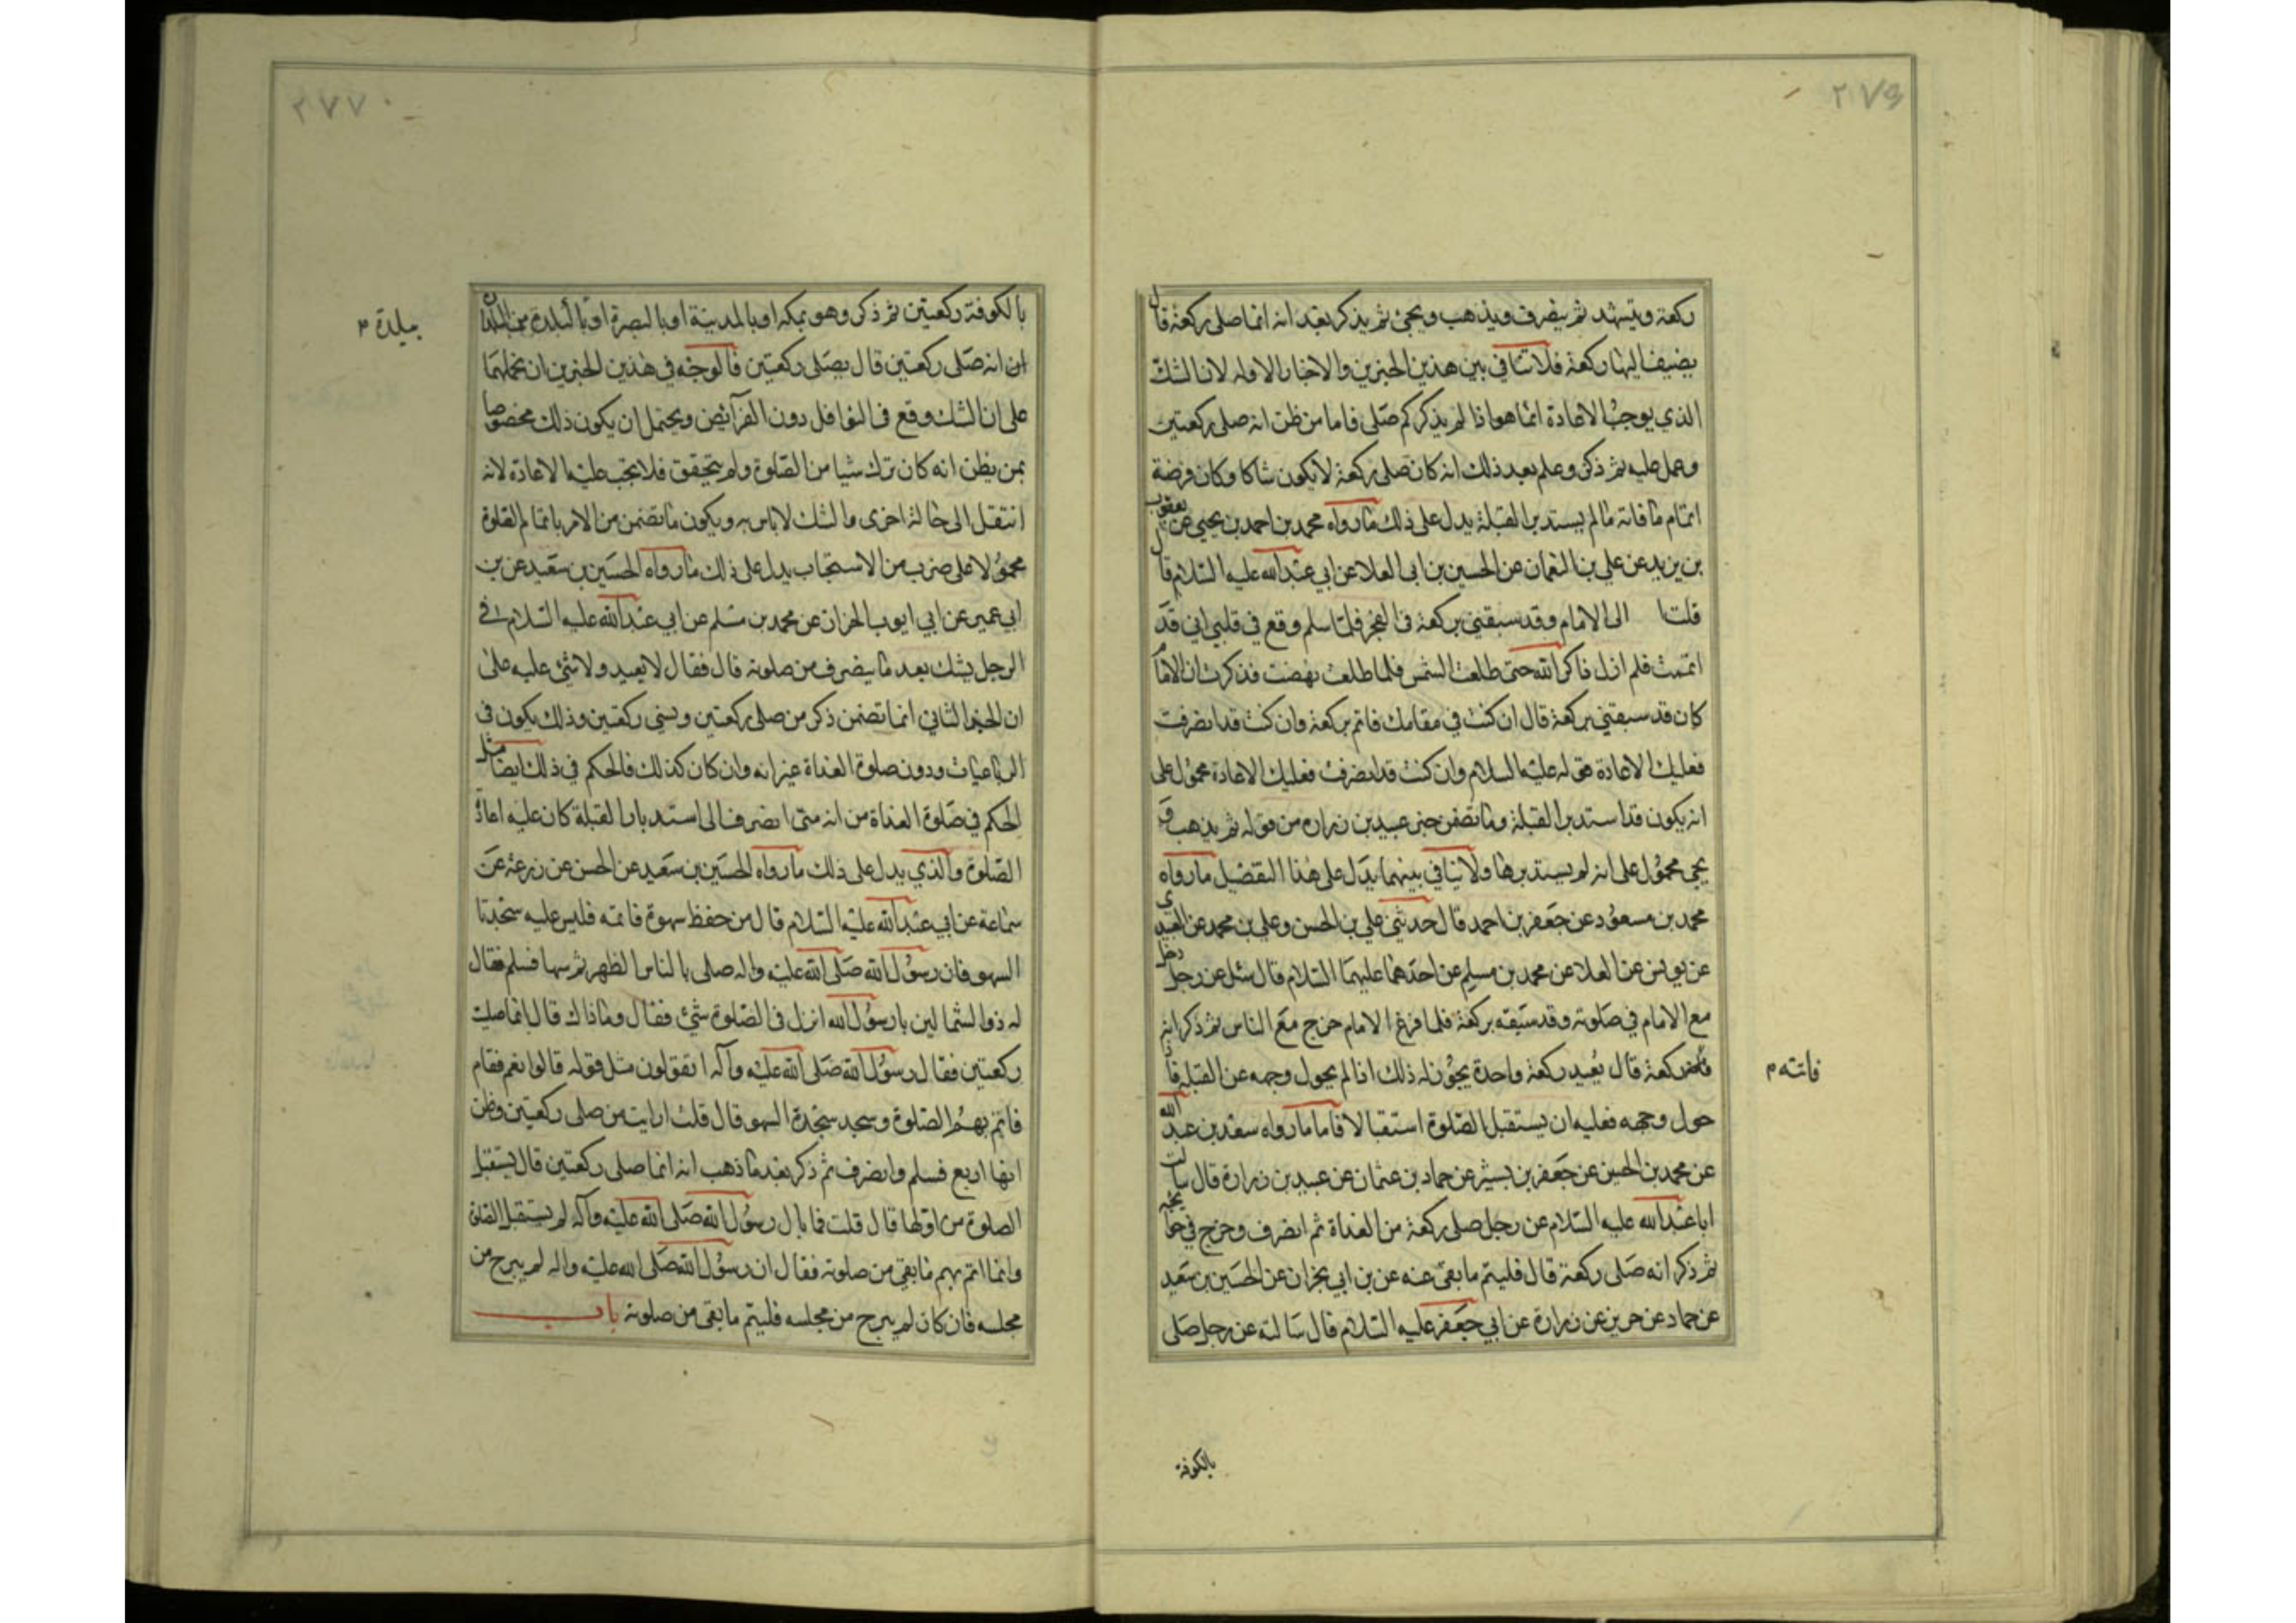 ٢٧٦
ركعة ويتشهد ثم ينصرف ويذهب ويجئ ثم يذكر بعد انه انما صلى ركعة قال
يضيف اليها ركعة فلا تنافي بين هذين الخبرين والاخبار الاوله لان الشك
الذي يوجب الاعادة انما هو اذا لم يذكر كم صلى فاما من ظن انه صلى ركعتين
وعمل عليه ثم ذكر وعلم بعد ذلك انه كان صلى ركعة لا يكون شاكا وكان فرضة
اتمام ما فاته ما لم يستدبر القبلة يدل على ذلك ما رواه محمد بن احمد بن يحيى عن يعقوب
بن يزيد عن علي بن النعمان عن الحسين بن ابى العلا عن ابي عبد الله عليه السلام قال
قلت الى الامام وقد سبقني بركعة في الفجر فلما سلم وقع في قلبي اني قد
اتممت فلم ازل ذاكر الله حتى طلعت الشمس فلما طلعت نهضت فذكرت ان الامام
كان قد سبقني بركعة قال ان كنت في مقامك فاتم بركعة وان كنت قد انصرفت
فعليك الاعادة قوله عليه السلام وان كنت قد انصرفت فعليك الاعادة محمول على
انه يكون قد استدبر القبلة وما تضمن خبر عبيد بن زراره من قوله ثم يذهب و
يجي محمول على انه لم يستدبرها ولا تنافي بينهما يدل على هذا التفضيل ما رواه
محمد بن مسعود عن جعفر بن احمد قال حدثني علي بن الحسن وعلي بن محمد عن العبيدي
عن يونس عن العلا عن محمد بن مسلم عن احدهما عليهما السلام قال سئل عن رجل دخل
مع الامام في صلوته وقد سبقه بركعة فلما فرغ الامام خرج مع الناس ثم ذكر انه
ركعة قال يعيد ركعة واحدة يجوز له ذلك اذا لم يحول وجهه عن القبلة فاذا
فاتته م
حول وجهه فعليه ان يستقبل الصلوة استقبالا فاما ما رواه سعد بن عبد الله
عن محمد بن الحسين عن جعفر بن بشير عن حماد بن عثمان عن عبيد بن زرارة قال سالت
ابا عبد الله عليه السلام عن رجل صلى ركعة من الغداة ثم انصرف وخرج في حوايجه
ثم ذكر انه صلى ركعة قال فليتم ما بقي عنه عن بن ابي نجران عن الحسين بن سعيد
عن حماد عن حريز عن زرارة عن ابي جعفر عليه السلام قال سالته عن رجل صلى
بالكوفة
٢٧٧
بالكوفة ركعتين ثم ذكر وهو بمكه او بالمدينة او بالبصرة او بالبلدة من البلدان
بلدة م
انه صلى ركعتين قال يصلى ركعتين فالوجه في هذين الخبرين ان نحملهما
على ان الشك وقع في النوافل دون الفرآئض ويحتمل ان يكون ذلك مخصوصا
بمن يظن انه كان ترك شيا من الصلوة ولم يتحقق فلا يجب عليه الاعادة لانه
انتقل الى حالة اخرى والشك لا باس به ويكون ما تضمن من الامر باتمام الصلوة
محمولا على ضرب من الاستحباب يدل على ذلك ما رواه الحسين بن سعيد عن بن
ابي عمير عن ابي ايوب الخزاز عن محمد بن مسلم عن ابي عبد الله عليه السلام في
الرجل يشك بعد ما ينصرف من صلوته قال فقال لا يعيد ولا شئ عليه على
ان الخبر الثاني انما تضمن ذكر من صلى ركعتين ونسي ركعتين وذلك يكون في
الرباعيات ودون صلوة الغداة غير انه وان كان كذلك فالحكم في ذلك ايضا مثل
الحكم في صلوة الغداة من انه متى انصرف الى استدبار القبلة كان عليه اعادة
الصلوة والذي يدل على ذلك ما رواه الحسين بن سعيد عن الحسن عن زرعة عن
سماعة عن ابي عبد الله عليه السلام قال من حفظ سهوة فاتمه فليس عليه سجدتا
السهو فان رسول الله صلى الله عليه واله صلى بالناس الظهر ثم سها فسلم فقال
له ذو الشمالين يا رسول الله انزل في الصلوة شئ فقال وما ذاك قال انما صليت
ركعتين فقال رسول الله صلى الله عليه وآله اتقولون مثل قوله قالوا نعم فقام
فاتم بهم الصلوة وسجد سجدة السهو قال قلت ارايت من صلى ركعتين وظن
انها اربع فسلم وانصرف ثم ذكر بعد ما ذهب انه انما صلى ركعتين قال يستقبل
الصلوة من اولها قال قلت فما بال رسول الله صلى الله عليه وآله لم يستقبل الصلوة
وانما اتم بهم ما بقي من صلوته فقال ان رسول الله صلى الله عليه واله لم يبرح من
مجلسه فان كان لم يبرح من مجلسه فليتم ما بقى من صلوته باب